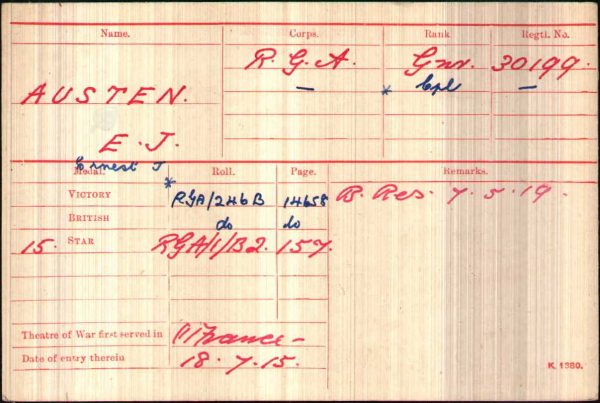 Name. Corps. Rank Regtl. No.
R. G. A. Gnr. 30199.
AUSTEN. — * Cpl —
E. J.
Ernest J
Medal. Roll. Page. Remarks.
*
VICTORY RGA/246B 14658 B. Res. 7. 5. 19.
BRITISH do do
15. STAR RGA/1/B2. 157.
Theatre of War first served in (1) France –
Date of entry therein 18. 7. 15.
K. 1380.